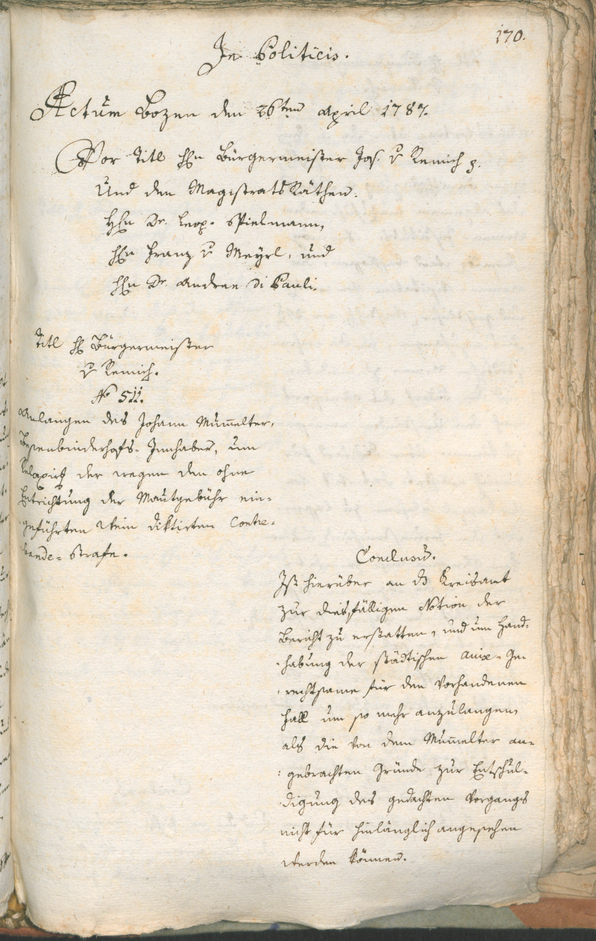 170.
In Politicis.
Actum Bozen den 26ten April 1787.
Vor Titl Hhn Bürgermeister Jos. v Remich
Und den Magistrats Räthen.
Hhn Dr. Leop. Spielmann,
Hhn Franz v Mayrl, und
Hhn Dr. Andree Di Pauli.
Titl Hh Bürgermeister
v Remich.
No 511.
Anlangen des Johann Mumelter,
Besenbinderhofs-Innhaber, um
Relaxirung der wegen den ohne
Entrichtung der Mautgebühr ein-
geführten Wein diktirten Contre-
bande-Strafe.
Conclusum.
Ist hierüber an das Kreisamt
zur diesfälligen Notion der
Bericht zu erstatten, und um Hand-
habung der städtischen Ge-
rechtsame für den vorhandenen
Fall um so mehr anzulangen,
als die von dem Mumelter an-
gebrachten Gründe zur Entschul-
digung des gedachten Vorgangs
nicht für hinlänglich angesehen
werden können.